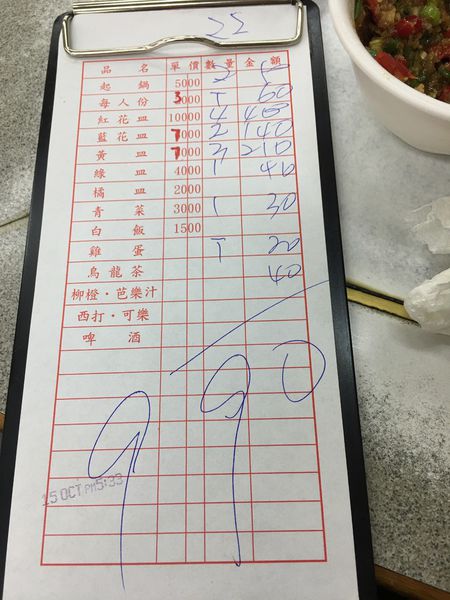 22
品名 單價 數量 金額
起鍋 5000
每人份 3000 T 60
紅花皿 10000 4 400
藍花皿 7000 2 140
黃皿 7000 3 210
綠皿 4000 1 40
橘皿 2000
青菜 3000 1 30
白飯 1500
雞蛋 T 20
烏龍茶 40
柳橙・芭樂汁
西打・可樂
啤酒
990
15 OCT PM5:33